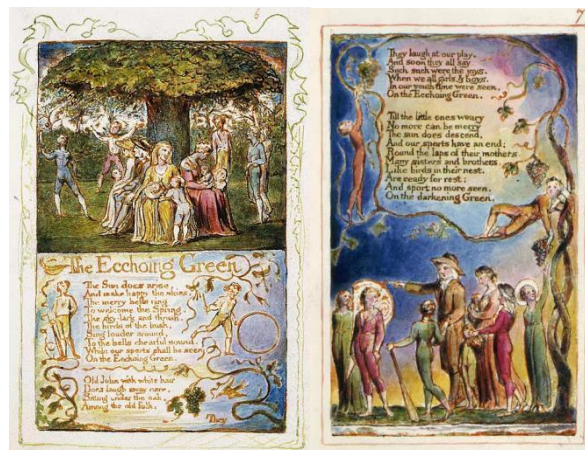 6
The Ecchoing Green
The Sun does arise,
And make happy the skies.
The merry bells ring
To welcome the Spring.
The sky-lark and thrush,
The birds of the bush,
Sing louder around,
To the bells chearful sound.
While our sports shall be seen
On the Ecchoing Green.
Old John with white hair
Does laugh away care,
Sitting under the oak,
Among the old folk,
They
7
They laugh at our play,
And soon they all say
Such such were the joys.
When we all girls & boys,
In our youth time were seen,
On the Ecchoing Green.
Till the little ones weary
No more can be merry
The sun does descend,
And our sports have an end:
Round the laps of their mothers,
Many sisters and brothers,
Like birds in their nest,
Are ready for rest;
And sport no more seen,
On the darkening Green.